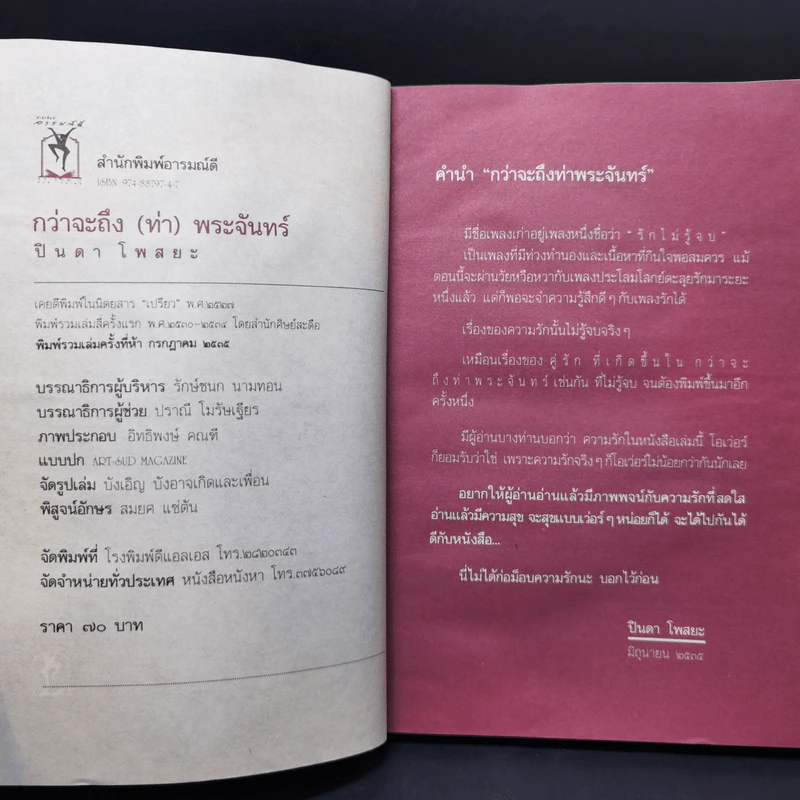 สำนักพิมพ์อารมณ์ดี
ISBN 974-88797-4-7
กว่าจะถึง (ท่า) พระจันทร์
ปินดา โพสยะ
เคยตีพิมพ์ในนิตยสาร "เปรียว" พ.ศ.๒๕๒๗
พิมพ์รวมเล่มสี่ครั้งแรก พ.ศ.๒๕๓๐-๒๕๓๔ โดยสำนักศิษย์สะดือ
พิมพ์รวมเล่มครั้งที่ห้า กรกฎาคม ๒๕๓๕
บรรณาธิการผู้บริหาร รักษ์ชนก นามทอน
บรรณาธิการผู้ช่วย ปราณี โมรัษเฐียร
ภาพประกอบ อิทธิพงษ์ คณที
แบบปก ART-SUD MAGAZINE
จัดรูปเล่ม บังเอิญ บังอาจเกิดและเพื่อน
พิสูจน์อักษร สมยศ แซ่ตัน
จัดพิมพ์ที่ โรงพิมพ์ดีแอลเอส โทร.๒๘๒๐๓๔๓
จัดจำหน่ายทั่วประเทศ หนังสือหนังหา โทร.๓๗๕๖๐๘๙
ราคา ๗๐ บาท
คำนำ "กว่าจะถึงท่าพระจันทร์"
มีชื่อเพลงเก่าอยู่เพลงหนึ่งชื่อว่า "รักไม่รู้จบ"
เป็นเพลงที่มีท่วงทำนองและเนื้อหาที่กินใจพอสมควร แม้
ตอนนี้จะผ่านวัยหวือหวากับเพลงประโลมโลกย์ตะลุยรักมาระยะ
หนึ่งแล้ว แต่ก็พอจะจำความรู้สึกดีๆ กับเพลงรักได้
เรื่องของความรักนั้นไม่รู้จบจริงๆ
เหมือนเรื่องของ คู่รัก ที่เกิดขึ้นใน กว่าจะ
ถึงท่าพระจันทร์ เช่นกัน ที่ไม่รู้จบ จนต้องพิมพ์ขึ้นมาอีก
ครั้งหนึ่ง
มีผู้อ่านบางท่านบอกว่า ความรักในหนังสือเล่มนี้ โอเว่อร์
ก็ยอมรับว่าใช่ เพราะความรักจริงๆ ก็โอเว่อร์ไม่น้อยกว่ากันนักเลย
อยากให้ผู้อ่านอ่านแล้วมีภาพพจน์กับความรักที่สดใส
อ่านแล้วมีความสุข จะสุขแบบเว่อร์ๆ หน่อยก็ได้ จะได้ไปกันได้
ดีกับหนังสือ...
นี่ไม่ได้ก่อม็อบความรักนะ บอกไว้ก่อน
ปินดา โพสยะ
มิถุนายน ๒๕๓๕